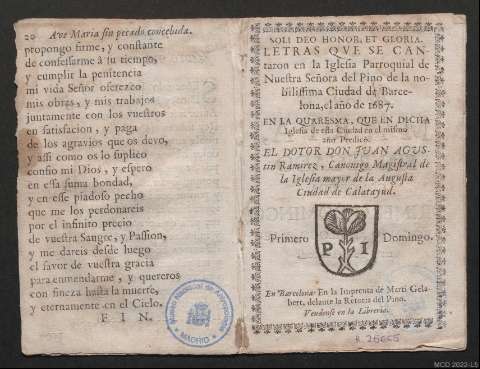 20 Ave Maria sin pecado concebida.
propongo firme, y constante
de confessarme à su tiempo,
y cumplir la penitencia
mi vida Señor ofrezco
mis obras, y mis trabajos
juntamente con los vuestros
en satisfacion, y paga
de los agravios que os devo,
y assi como os lo suplico
confio mi Dios, y espero
en essa suma bondad,
y en ese piadoso pecho
que me los perdonareis
por el infinito precio
de vuestra Sangre, y Passion,
y me dareis desde luego
el favor de vuestra gracia
para enmendarme, y quereros
con fineza hasta la muerte,
y eternamente en el Cielo.
F I N.
MADRID
SOLI DEO HONOR, ET GLORIA.
LETRAS QVE SE CAN-
taron en la Iglesia Parroquial de
Nuestra Señora del Pino de la no-
bilissima Ciudad de Barce-
lona, el año de 1687.
EN LA QUARESMA, QUE EN DICHA
Iglesia de esta Ciudad en el mismo
año Predicò.
EL DOTOR DON JUAN AGUS-
tin Ramirez, Canonigo Magistral de
la Iglesia mayor de la Augusta
Ciudad de Calatayud.
Primero P I Domingo.
En Barcelona: En la Imprenta de Marti Gela-
bert, delante la Retoria del Pino.
Vendense en la Libreria.
MCD 2022-L5